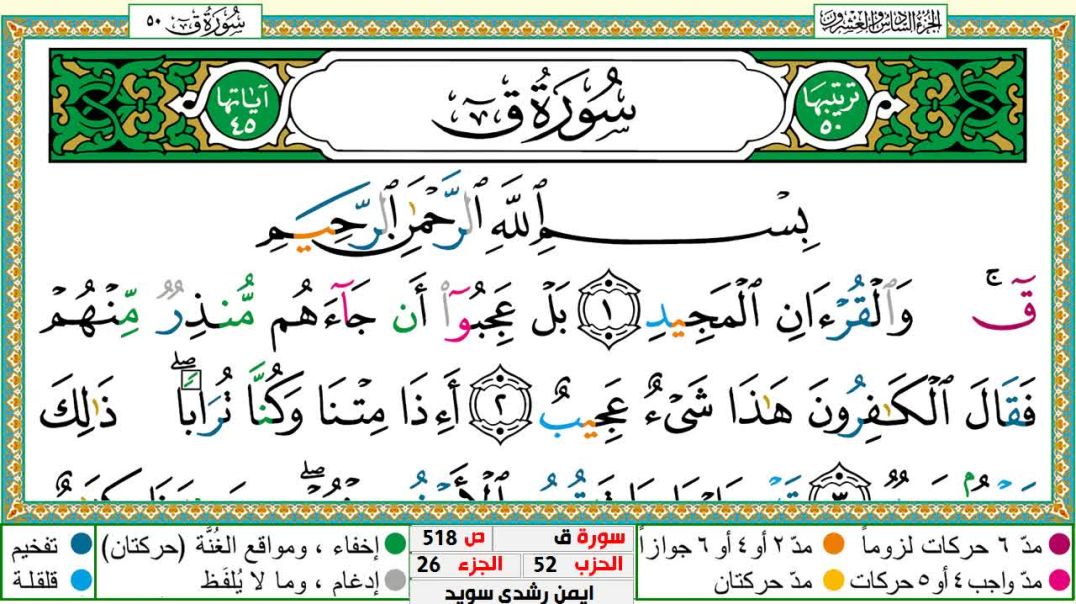 الجزء السادس والعشرون
سُورَةُ قٓ ٥٠
ترتيبها ٥٠
سُورَةُ قٓ
آياتها ٤٥
بِسْمِ ٱللَّهِ ٱلرَّحْمَٰنِ ٱلرَّحِيمِ
قٓۚ وَٱلْقُرْءَانِ ٱلْمَجِيدِ ١ بَلْ عَجِبُوٓا۟ أَن جَآءَهُم مُّنذِرٌ مِّنْهُمْ
فَقَالَ ٱلْكَٰفِرُونَ هَٰذَا شَىْءٌ عَجِيبٌ ٢ أَءِذَا مِتْنَا وَكُنَّا تُرَابًاۖ ذَٰلِكَ
مدّ ٦ حركات لزوماً
مدّ ٢ أو ٤ أو ٦ جوازاً
مدّ واجب ٤ أو ٥ حركات
مدّ حركتان
سورة ق
ص 518
الحزب 52
الجزء 26
ايمن رشدي سويد
إخفاء ، ومواقع الغُنَّة (حركتان)
تفخيم
إدغام ، وما لا يُلفَظ
قلقلة